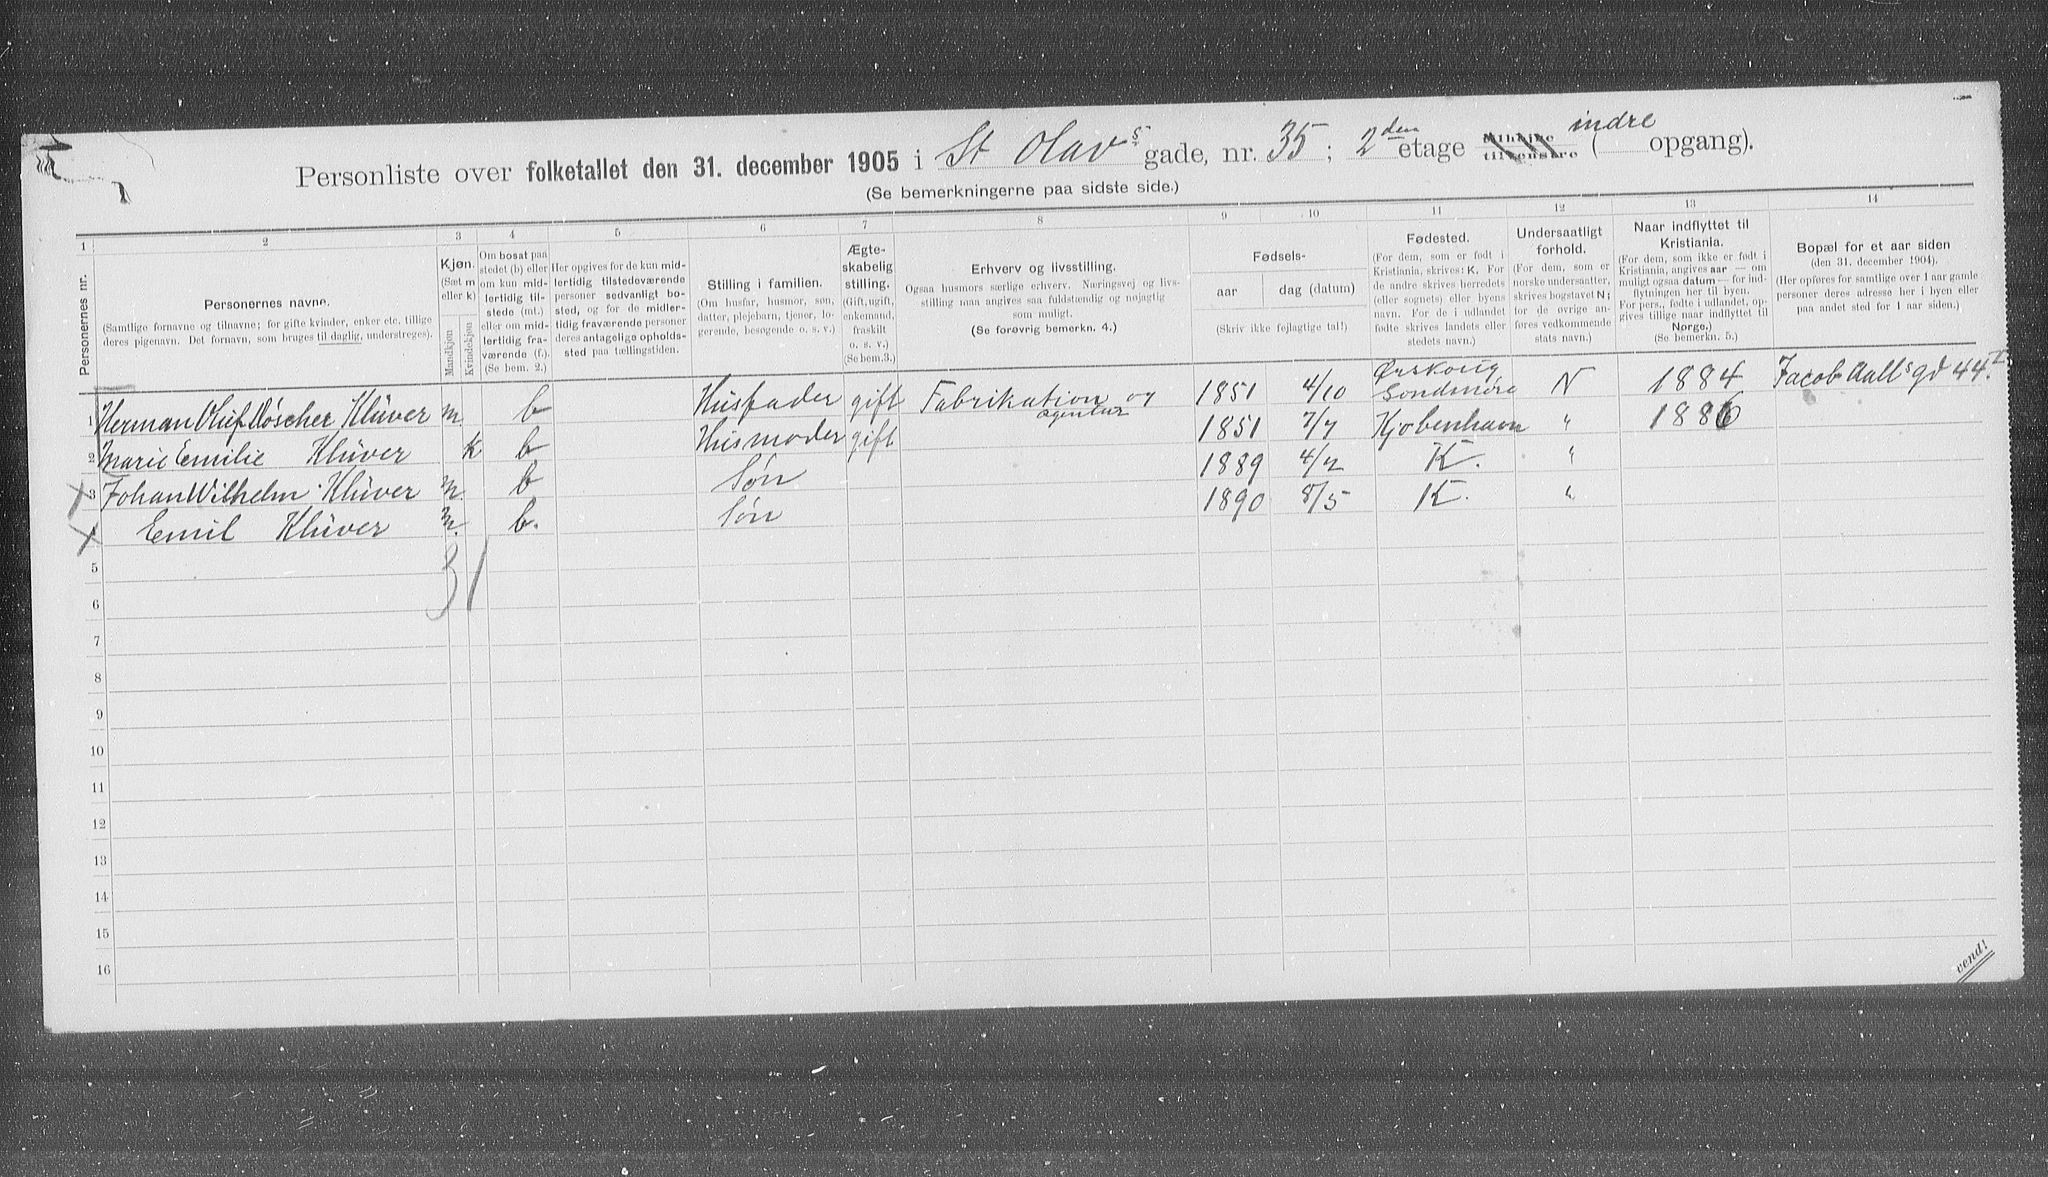 Personliste over folketallet den 31. december 1905 i St Olavs gade, nr. 35; 2den etage tilhøire tilvenstre (indre opgang).
(Se bemerkningerne paa sidste side.)
1 2 3 4 5 6 7 8 9 10 11 12 13 14
Personernes nr.
Personernes navne.
(Samtlige fornavne og tilnavne; for gifte kvinder, enker etc. tillige
deres pigenavn. Det fornavn, som bruges til daglig, understreges).
Kjøn.
(Sæt m
eller k)
Mandkjøn
Kvindekjøn
Om bosat paa
stedet (b) eller
om kun mid-
lertidig til-
stede (mt.)
eller om mid-
lertidig fra-
værende (f.).
(Se bem. 2.)
Her opgives for de kun mid-
lertidig tilstedeværende
personer sedvanligt bo-
sted, og for de midler-
tidig fraværende personer
deres antagelige opholds-
sted paa tællingstiden.
Stilling i familien.
(Om husfar, husmor, søn,
datter, plejebarn, tjener, lo-
gerende, besøgende o. s. v.)
Ægte-
skabelig
stilling.
(Gift, ugift,
enkemand,
fraskilt
o. s. v.)
(Se bem.3.)
Erhverv og livsstilling.
Ogsaa husmors særlige erhverv. Næringsvej og livs-
stilling maa angives saa fuldstændig og nøjagtig
som muligt.
(Se forøvrig bemerkn. 4.)
Fødsels-
aar
dag (datum)
(Skriv ikke fejlagtige tal!)
Fødested.
(For dem, som er født i
Kristiania, skrives: K. For
de andre skrives herredets
(eller sognets) eller byens
navn. For de i udlandet
fødte skrives landets eller
stedets navn.)
Undersaatligt
forhold.
(For dem, som er
norske undersaatter,
skrives bogstavet N;
for de øvrige an-
føres vedkommende
stats navn.)
Naar indflyttet til
Kristiania.
(For dem, som ikke er født i
Kristiania, angives aar — om
muligt ogsaa datum — for ind-
flytningen her til byen.
For pers., fødte i udlandet, op-
gives tillige naar indflyttet til
Norge.)
(Se bemerkn. 5.)
Bopæl for et aar siden
(den 31. december 1904).
(Her opføres for samtlige over 1 aar gamle
personer deres adresse her i byen eller
paa andet sted for 1 aar siden.)
1 Herman Oluf Røscher Klüver m b Husfader gift Fabrikation og agentur 1851 4/10 Ørskoug Søndmøre N 1884 Jacob Aalls gd 44 I
2 Marie Emilie Klüver k b Husmoder gift 1851 7/7 Kjøbenhavn " 1886
3 Johan Wilhelm Klüver m b Søn 1889 4/2 K. "
Emil Klüver m. b. Søn 1890 8/5 K. "
3 1
5
6
7
8
9
10
11
12
13
14
15
16
vend!